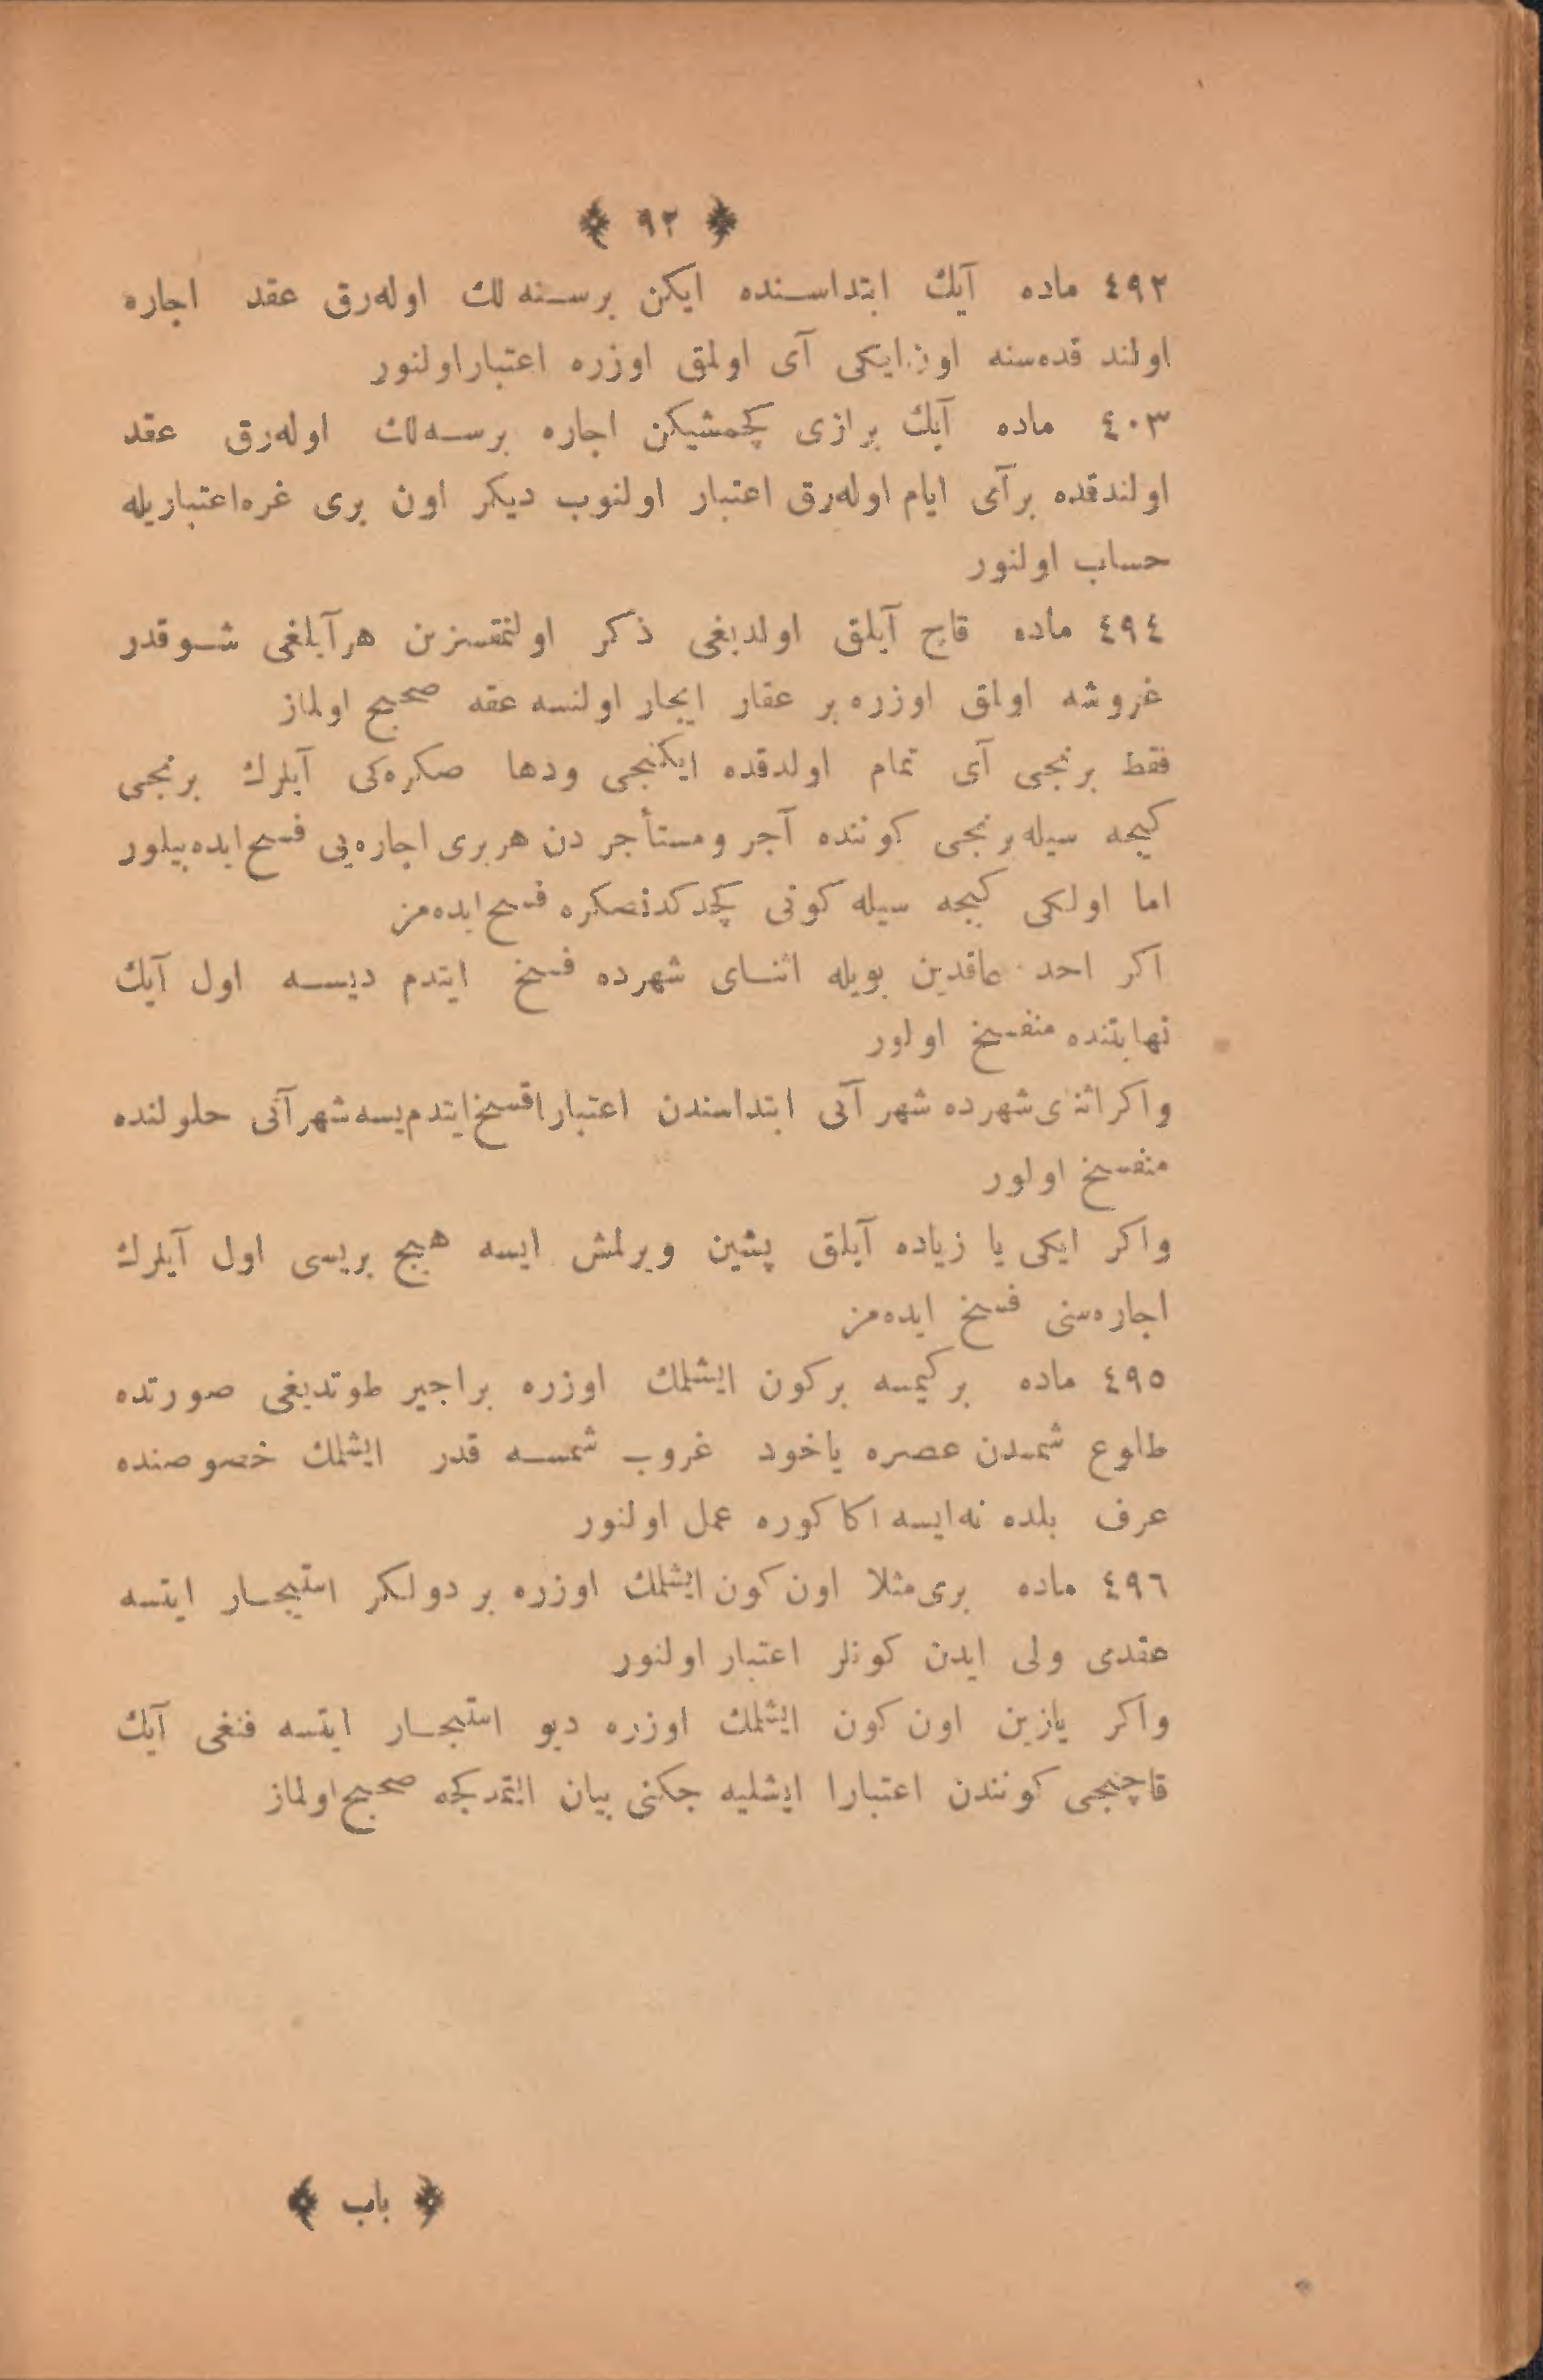 ﴿ ٩٢ ﴾
٤٩٢ ماده آیك ابتداسنده ایكن برسنه لك اوله‌رق عقد اجاره
اولند قده‌سنه اون ایكی آی اولمق اوزره اعتبار اولنور
٤٠٣ ماده آیك برازی كچمشیكن اجاره برسه‌لك اوله‌رق عقد
اولندقده برآی ایام اوله‌رق اعتبار اولنوب دیكر اون بری غره‌اعتباریله
حساب اولنور
٤٩٤ ماده قاچ آیلق اولدیغی ذكر اولنمقسزین هرآیلغی شوقدر
غروشه اولمق اوزره بر عقار ایجار اولنسه عقه صحیح اولماز
فقط برنجی آی تمام اولدقده ایكنجی ودها صكره‌كی آیلرك برنجی
كیجه سیله‌برنجی كوننده آجر ومستأجر دن هربری اجاره‌یی فسح ایده‌بیلور
اما اولكی كیجه سیله كونی كچدكدنصكره فسح ایده‌مز
اكر احد عاقدین بویله اثنای شهرده فسخ ایتدم دیسه اول آیك
نهایتنده منفسخ اولور
واكر اثنای شهرده شهر آتی ابتداسندن اعتبارا فسخ ایتدم‌یسه شهرآتی حلولنده
منفسخ اولور
واكر ایكی یا زیاده آیلق پشین ویرلمش ایسه هیچ بریسی اول آیلرك
اجاره‌سنی فسخ ایده‌مز
٤٩٥ ماده بركیمسه بركون ایشلمك اوزره براجیر طوتدیغی صورتده
طلوع شمسدن عصره یاخود غروب شمسه قدر ایشلمك خصوصنده
عرف بلده نه‌ایسه اكا كوره عمل اولنور
٤٩٦ ماده بری‌مثلا اون كون ایشلمك اوزره بر دولكر استیجار ایتسه
عقدی ولی ایدن كونلر اعتبار اولنور
واكر یازین اون كون ایشلمك اوزره دیو استیجار ایتسه قنغی آیك
قاچنجی كونندن اعتبارا ایشلیه جكنی بیان ایتمدكجه صحیح اولماز
﴿ باب ﴾